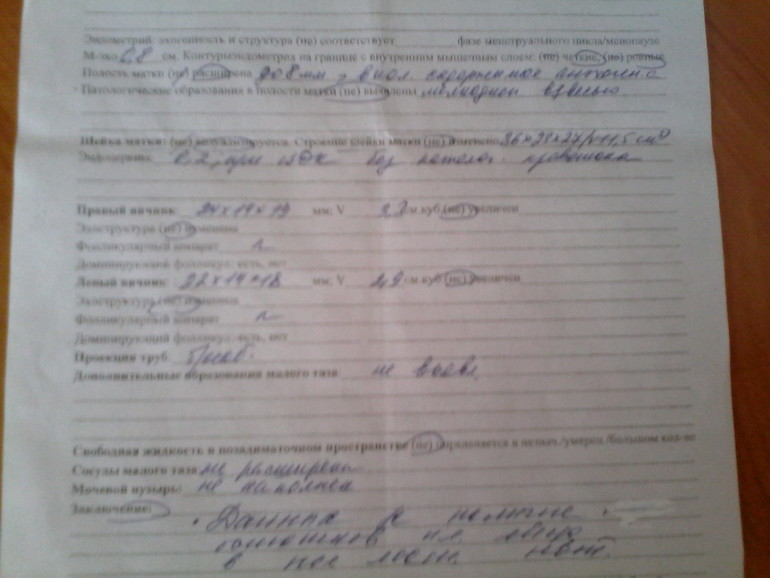 Эндометрий: эхогенность и структура (не) соответствует фазе менструального цикла/менопаузе
М-эхо 0,8 см. Контуры эндометрия на границе с внутренним мышечным слоем: (не) четкие, (не) ровные
Полость матки (не) расширена до 8 мм, с
Патологические образования в полости матки (не) выявлены взвесью
Шейка матки: (не) визуализируется. Строение шейки матки (не) изменено 36х28х27
Эндоцервикс 0,2, при ЦДК без патолог. кровотока
Правый яичник: 24х14х13 мм; V см.куб (не) увеличен
Эхоструктура (не) изменена
Фолликулярный аппарат
Доминирующий фолликул: есть, нет
Левый яичник: 22х14х18 мм; V 2,9 см.куб (не) увеличен
Эхоструктура (не) изменена
Фолликулярный аппарат
Доминирующий фолликул: есть, нет
Проекция труб
Дополнительные образования малого таза: не выявл.
Свободная жидкость в позадиматочном пространстве (не) определяется в незнач./умерен./большом кол-ве
Сосуды малого таза: не расширены
Мочевой пузырь: не наполнен
Заключение:
Данных за наличие
остатков пл. яйца
в пол. матки нет.